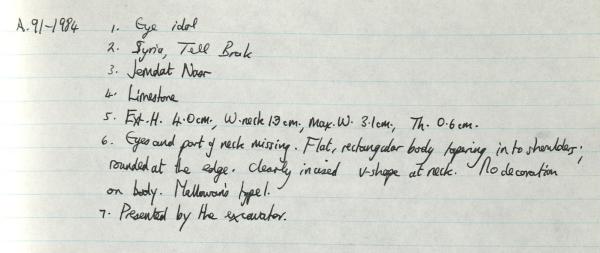 A.91-1984 1. Eye idol
2. Syria, Tell Brak
3. Jemdat Nasr
4. Limestone
5. Ext. H. 4.0cm., W. neck 1.3cm., Max. W. 3.1cm., Th. 0.6cm.
6. Eyes and part of neck missing. Flat, rectangular body tapering in to shoulders;
rounded at the edge. Clearly incised v-shape at neck. No decoration
on body. Mallowan's type 1.
7. Presented by the excavator.